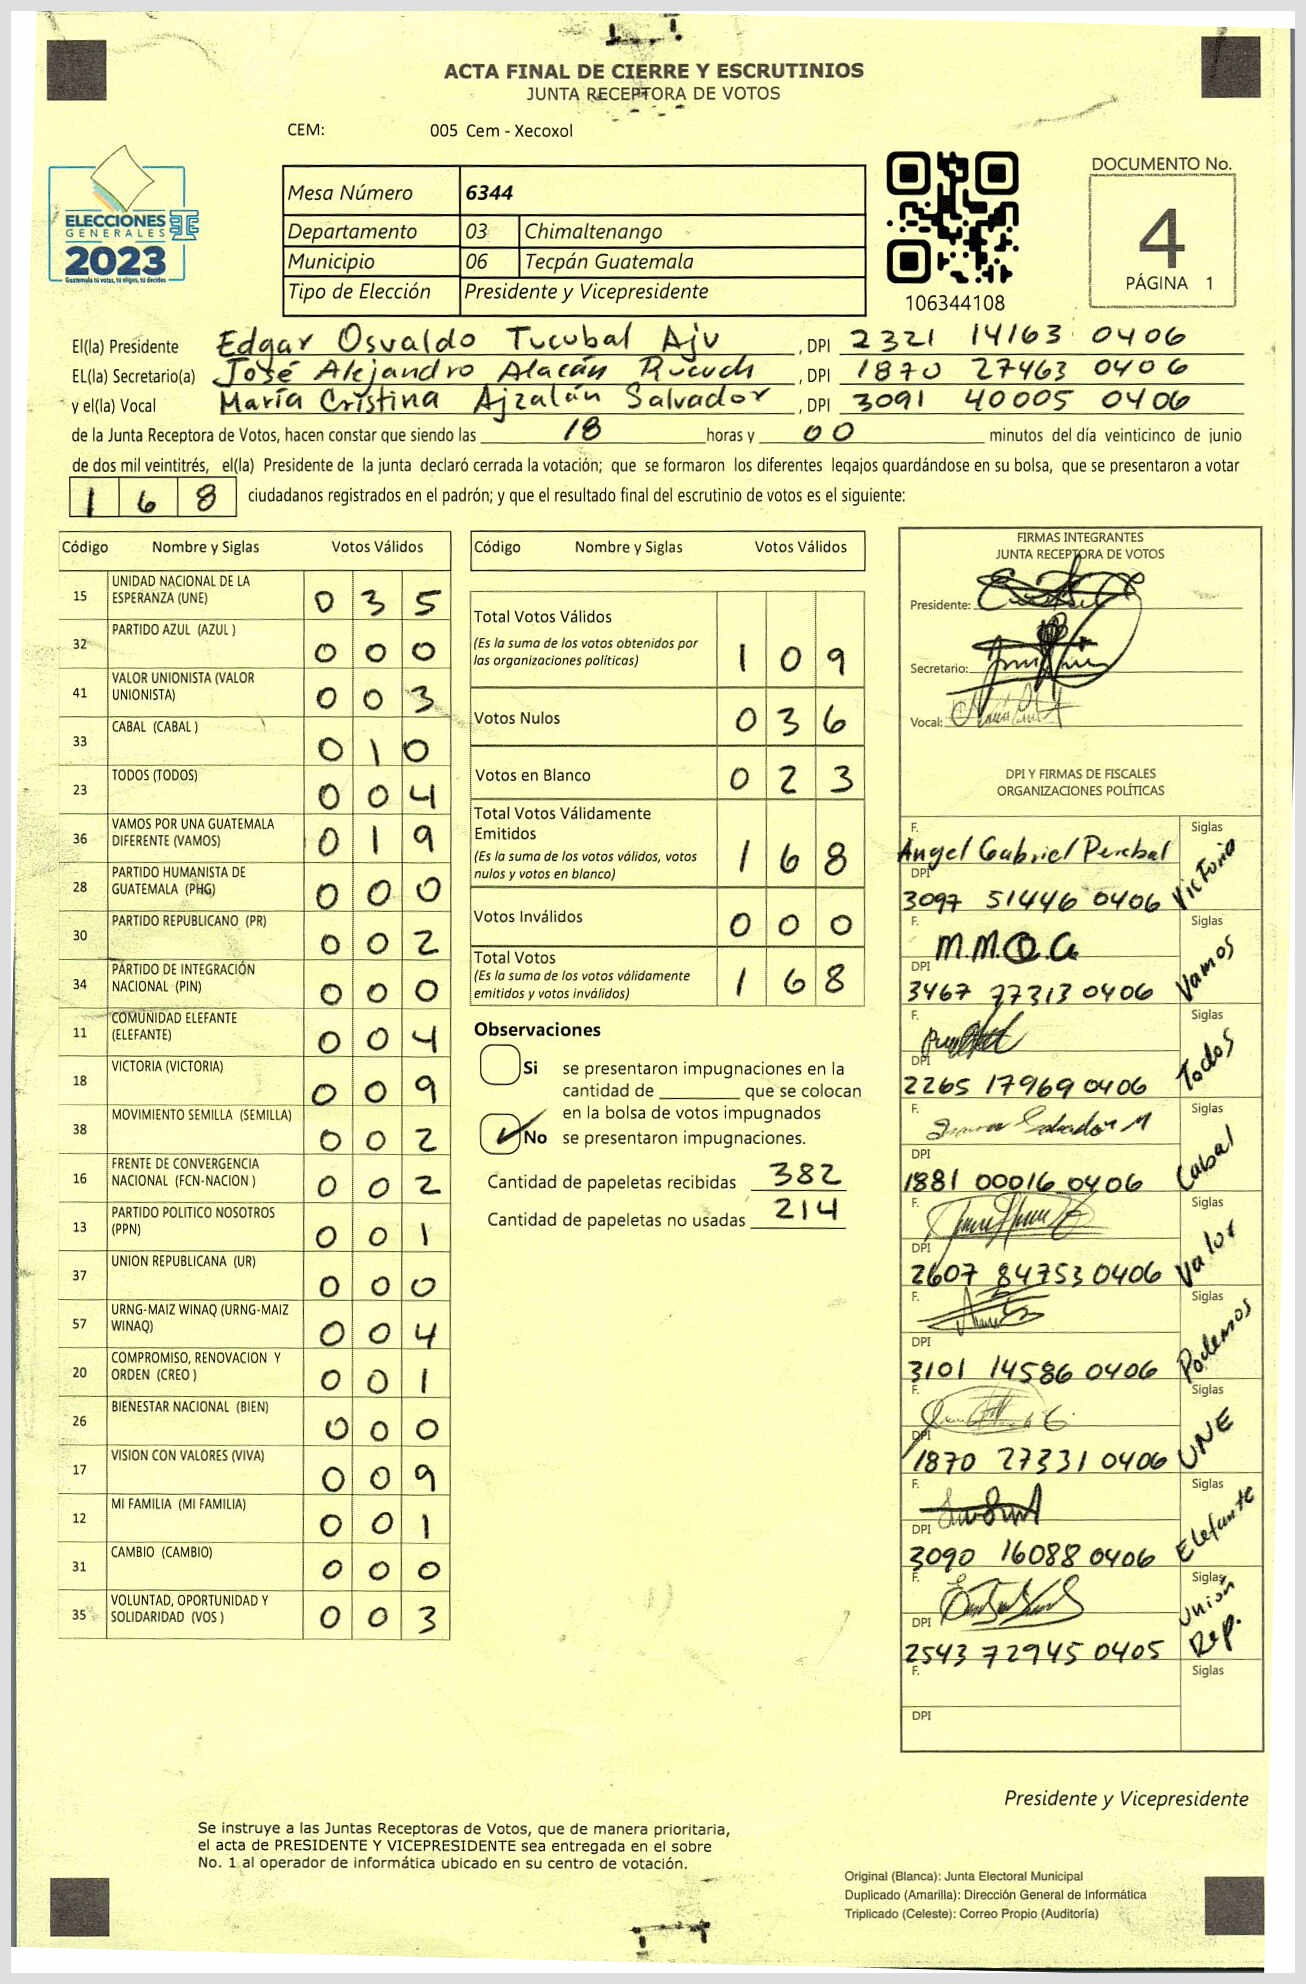 ACTA FINAL DE CIERRE Y ESCRUTINIOS
JUNTA RECEPTORA DE VOTOS
CEM: 005 Cem - Xecoxol
ELECCIONES
GENERALES
2023
Guatemala tú votas, tú eliges, tú decides
Mesa Número 6344
Departamento 03 Chimaltenango
Municipio 06 Tecpán Guatemala
Tipo de Elección Presidente y Vicepresidente
106344108
DOCUMENTO No.
4
PÁGINA 1
El(la) Presidente Edgar Osvaldo Tucubal Aju , DPI 2321 14163 0406
EL(la) Secretario(a) José Alejandro Alacán Rucuch , DPI 1870 27463 0406
y el(la) Vocal María Cristina Ajzalán Salvador , DPI 3091 40005 0406
de la Junta Receptora de Votos, hacen constar que siendo las 18 horas y 00 minutos del día veinticinco de junio
de dos mil veintitrés, el(la) Presidente de la junta declaró cerrada la votación; que se formaron los diferentes legajos guardándose en su bolsa, que se presentaron a votar
168 ciudadanos registrados en el padrón; y que el resultado final del escrutinio de votos es el siguiente:
Código Nombre y Siglas Votos Válidos
15 UNIDAD NACIONAL DE LA
ESPERANZA (UNE) 0 3 5
32 PARTIDO AZUL (AZUL ) 0 0 0
41 VALOR UNIONISTA (VALOR
UNIONISTA) 0 0 3
33 CABAL (CABAL ) 0 1 0
23 TODOS (TODOS) 0 0 4
36 VAMOS POR UNA GUATEMALA
DIFERENTE (VAMOS) 0 1 9
28 PARTIDO HUMANISTA DE
GUATEMALA (PHG) 0 0 0
30 PARTIDO REPUBLICANO (PR) 0 0 2
34 PARTIDO DE INTEGRACIÓN
NACIONAL (PIN) 0 0 0
11 COMUNIDAD ELEFANTE
(ELEFANTE) 0 0 4
18 VICTORIA (VICTORIA) 0 0 9
38 MOVIMIENTO SEMILLA (SEMILLA) 0 0 2
16 FRENTE DE CONVERGENCIA
NACIONAL (FCN-NACION ) 0 0 2
13 PARTIDO POLITICO NOSOTROS
(PPN) 0 0 1
37 UNION REPUBLICANA (UR) 0 0 0
57 URNG-MAIZ WINAQ (URNG-MAIZ
WINAQ) 0 0 4
20 COMPROMISO, RENOVACION Y
ORDEN (CREO ) 0 0 1
26 BIENESTAR NACIONAL (BIEN) 0 0 0
17 VISION CON VALORES (VIVA) 0 0 9
12 MI FAMILIA (MI FAMILIA) 0 0 1
31 CAMBIO (CAMBIO) 0 0 0
35 VOLUNTAD, OPORTUNIDAD Y
SOLIDARIDAD (VOS ) 0 0 3
Código Nombre y Siglas Votos Válidos
Total Votos Válidos
(Es la suma de los votos obtenidos por
las organizaciones políticas) 1 0 9
Votos Nulos 0 3 6
Votos en Blanco 0 2 3
Total Votos Válidamente
Emitidos
(Es la suma de los votos válidos, votos
nulos y votos en blanco) 1 6 8
Votos Inválidos 0 0 0
Total Votos
(Es la suma de los votos válidamente
emitidos y votos inválidos) 1 6 8
Observaciones
Si se presentaron impugnaciones en la
cantidad de ________ que se colocan
en la bolsa de votos impugnados
No se presentaron impugnaciones.
Cantidad de papeletas recibidas 382
Cantidad de papeletas no usadas 214
FIRMAS INTEGRANTES
JUNTA RECEPTORA DE VOTOS
Presidente:
Secretario:
Vocal:
DPI Y FIRMAS DE FISCALES
ORGANIZACIONES POLÍTICAS
F. Angel Gabriel Percbal Siglas Victoria
DPI 3097 51446 0406
F. M.M.O.G Siglas Vamos
DPI 3467 77313 0406
F. Siglas Todos
DPI 2265 17969 0406
F. Siglas Cabal
DPI 1881 00016 0406
F. Siglas Valor
DPI 2607 84753 0406
F. Siglas Podemos
DPI 3101 14586 0406
F. Siglas UNE
DPI 1870 27331 0406
F. Siglas Elefante
DPI 3090 16088 0406
F. Siglas Unión Rep.
DPI 2543 72945 0405
F. Siglas
DPI
Presidente y Vicepresidente
Se instruye a las Juntas Receptoras de Votos, que de manera prioritaria,
el acta de PRESIDENTE Y VICEPRESIDENTE sea entregada en el sobre
No. 1 al operador de informática ubicado en su centro de votación.
Original (Blanca): Junta Electoral Municipal
Duplicado (Amarilla): Dirección General de Informática
Triplicado (Celeste): Correo Propio (Auditoría)